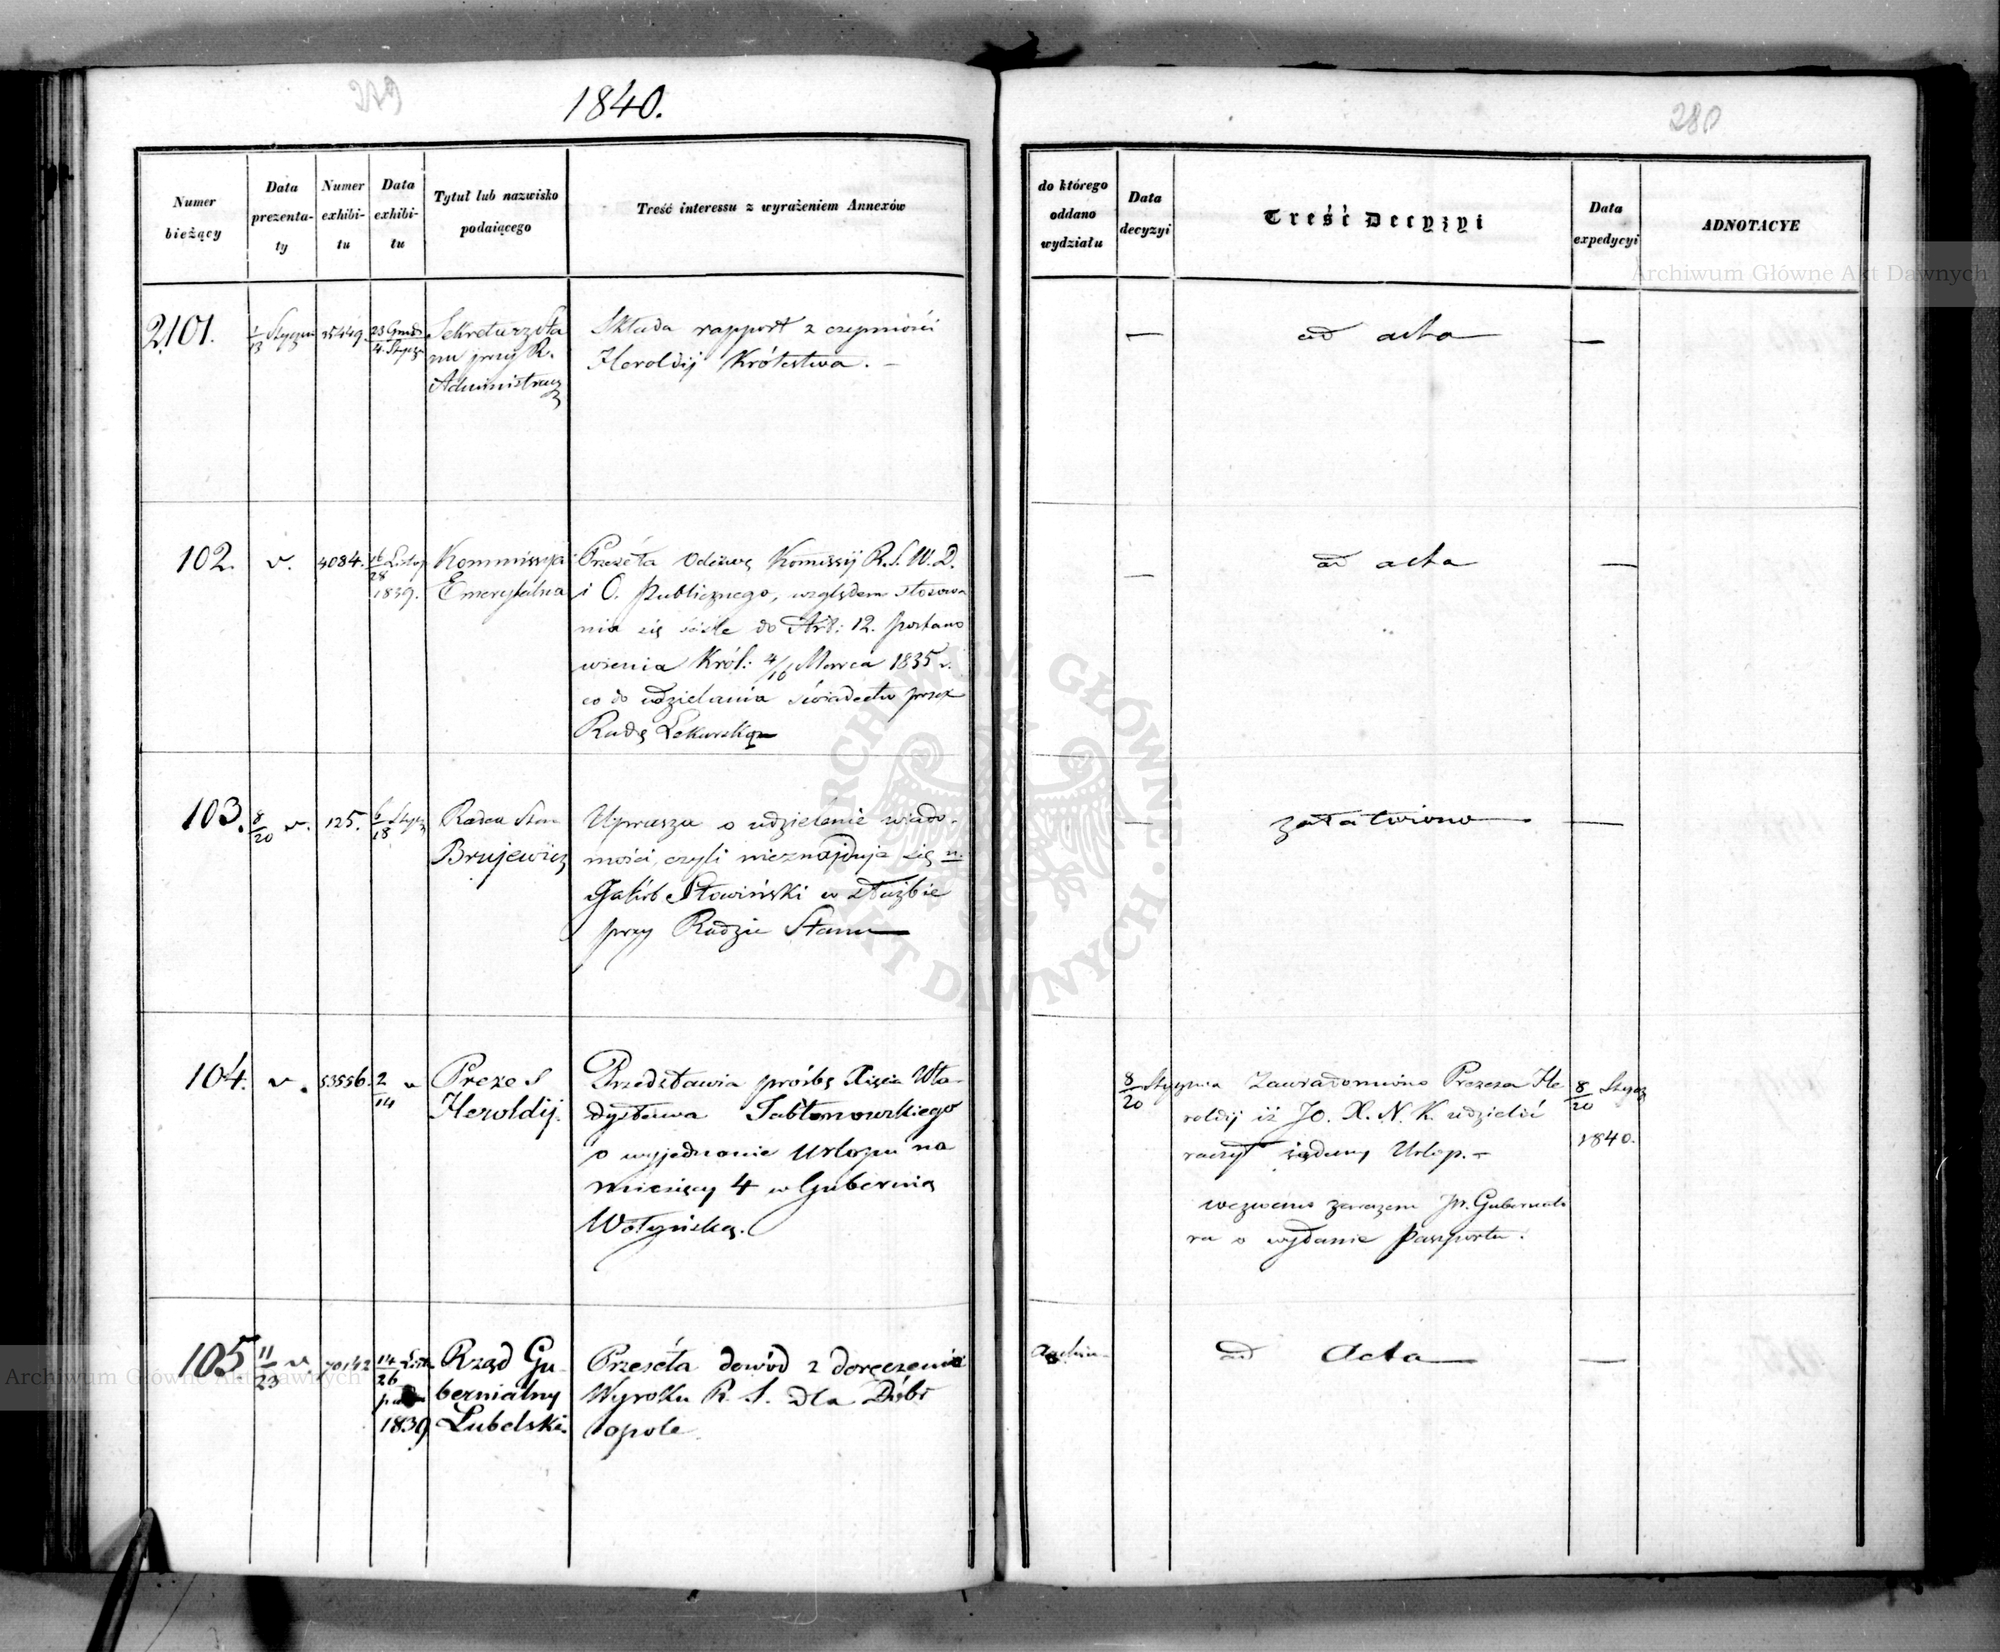 279
1840.
280
Numer bieżący
Data prezenta-ty
Numer exhibi-tu
Data exhibi-tu
Tytuł lub nazwisko podaiącego
Treść interessu z wyrażeniem Annexów
do którego oddano wydziału
Data decyzyi
Treść Decyzyi
Data expedycyi
ADNOTACYE
Archiwum Główne Akt Dawnych
2101.
1/13 Styczn
35449.
23 Grud
4 Stycz
Sekretarz Sta
nu przy R.
Administracy
Składa rapport z czynności
Heroldij Królestwa. —
—
ad acta
—
102.
v.
4084.
16/28 Listop
1839.
Kommissyja
Emerytalna
Przeséła Odezwę Komissij R.S.W.D.
i O. Publicznego, względem stosowa
nia się ściśle do Art: 12. postano
wienia Król: 4/16 Marca 1835 r.
co do udzielania świadectw przez
Radę Lekarską
—
ad acta
—
103.
8/20 v.
125.
6/18 Stycz
Radca Stan
Brujewicz
Uprasza o udzielenie wiado-
mości, czyli nieznajduje się n.
Jakób Słowiński w służbie
przy Radzie Stanu
—
załatwiono
—
104.
v.
53556.
2/14 v
Prezes
Heroldij.
Przedstawia prośbę Xięcia Wła-
dysława Jabłonowskiego
o wyjednanie Urlopu na
miesięcy 4 w Gubernią
Wołyńską.
8/20 Stycznia
Zawiadomiono Prezesa He
roldij iż JO. X. N. K. udzielić
raczył żądany Urlop. —
wezwano zarazem JW. Gubernato
ra o wydanie Paszportu.
8/20 Stycz
1840.
105
11/23 v.
70142
14/26 Listo
1839
Rząd Gu-
bernialny
Lubelski.
Przeséła dowód z doręczenia
Wyroku R. S. dla Dóbr
Opole.
ad Acta
—
Archiwum Główne Akt Dawnych
ARCHIWUM GŁÓWNE AKT DAWNYCH